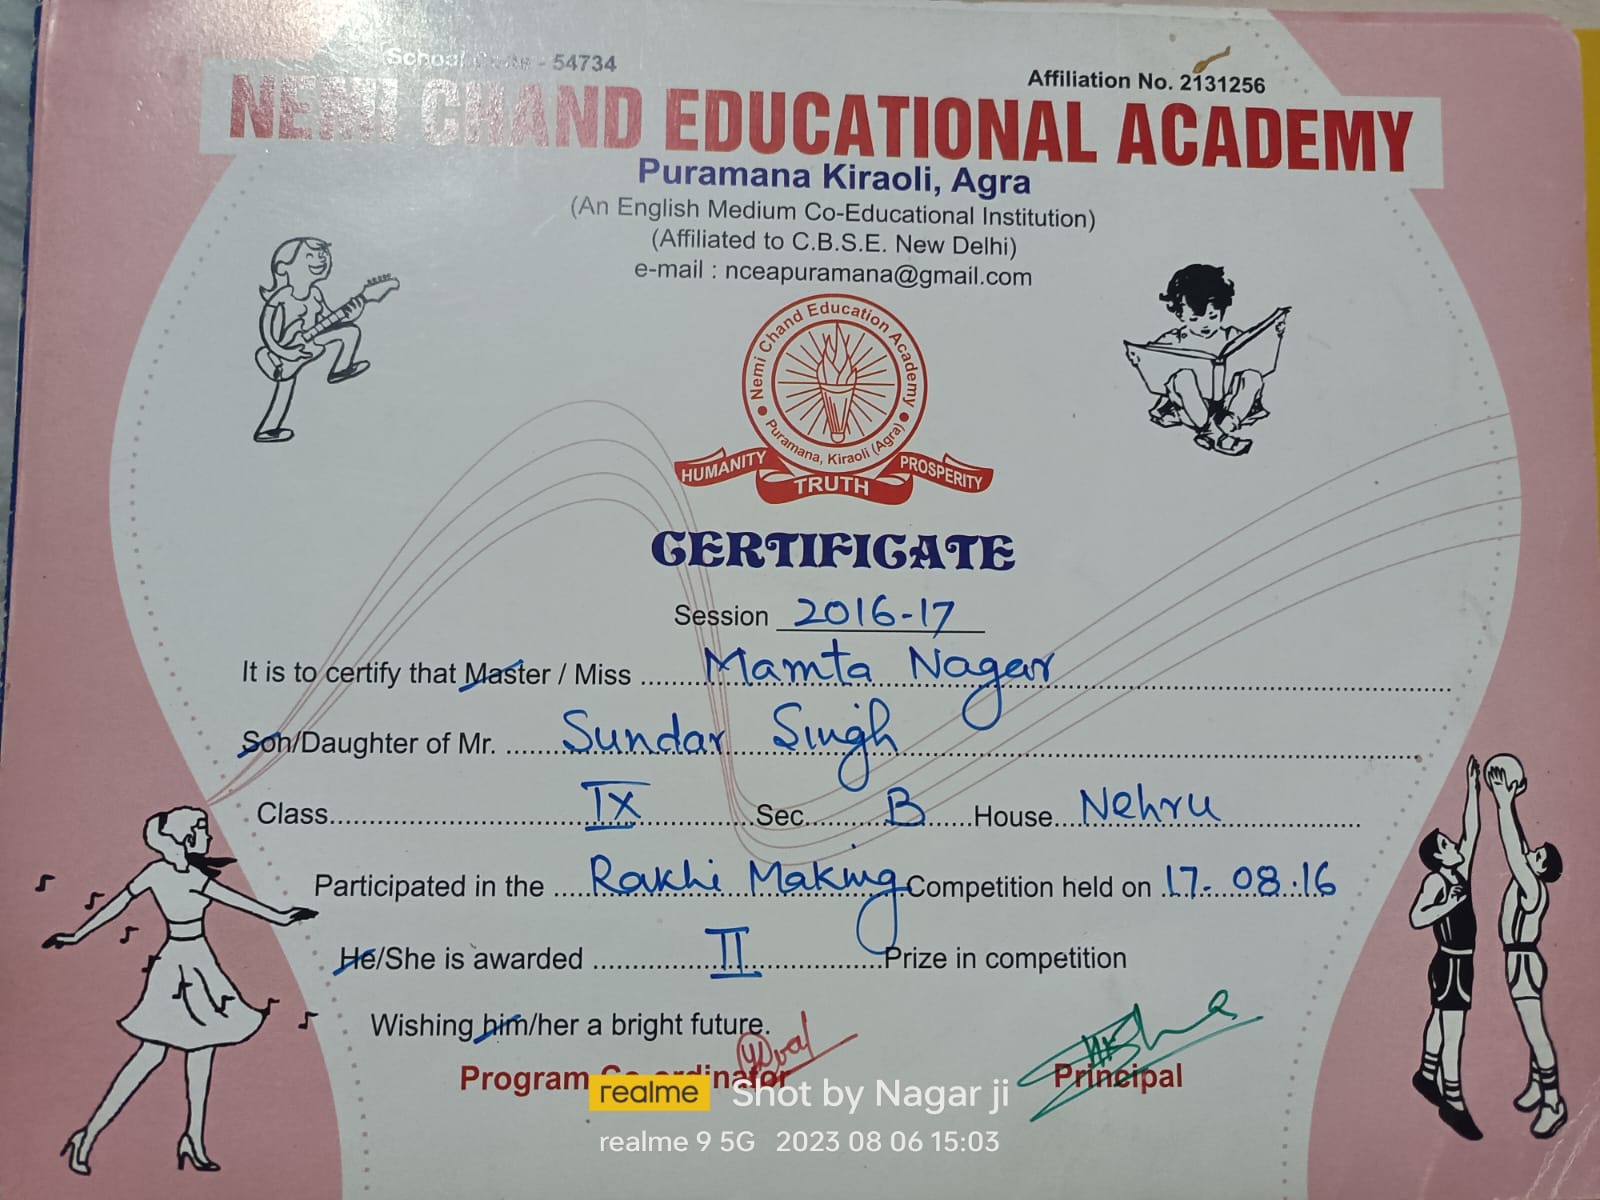 School Code - 54734
Affiliation No. 2131256
NEMI CHAND EDUCATIONAL ACADEMY
Puramana Kiraoli, Agra
(An English Medium Co-Educational Institution)
(Affiliated to C.B.S.E. New Delhi)
e-mail : nceapuramana@gmail.com
Nemi Chand Education Academy
Puramana, Kiraoli (Agra)
HUMANITY TRUTH PROSPERITY
CERTIFICATE
Session 2016-17
It is to certify that Master / Miss Mamta Nagar
Son/Daughter of Mr. Sundar Singh
Class IX Sec B House Nehru
Participated in the Rakhi Making Competition held on 17.08.16
He/She is awarded II Prize in competition
Wishing him/her a bright future.
Program Co-ordinator Principal
realme Shot by Nagar ji
realme 9 5G 2023 08 06 15:03